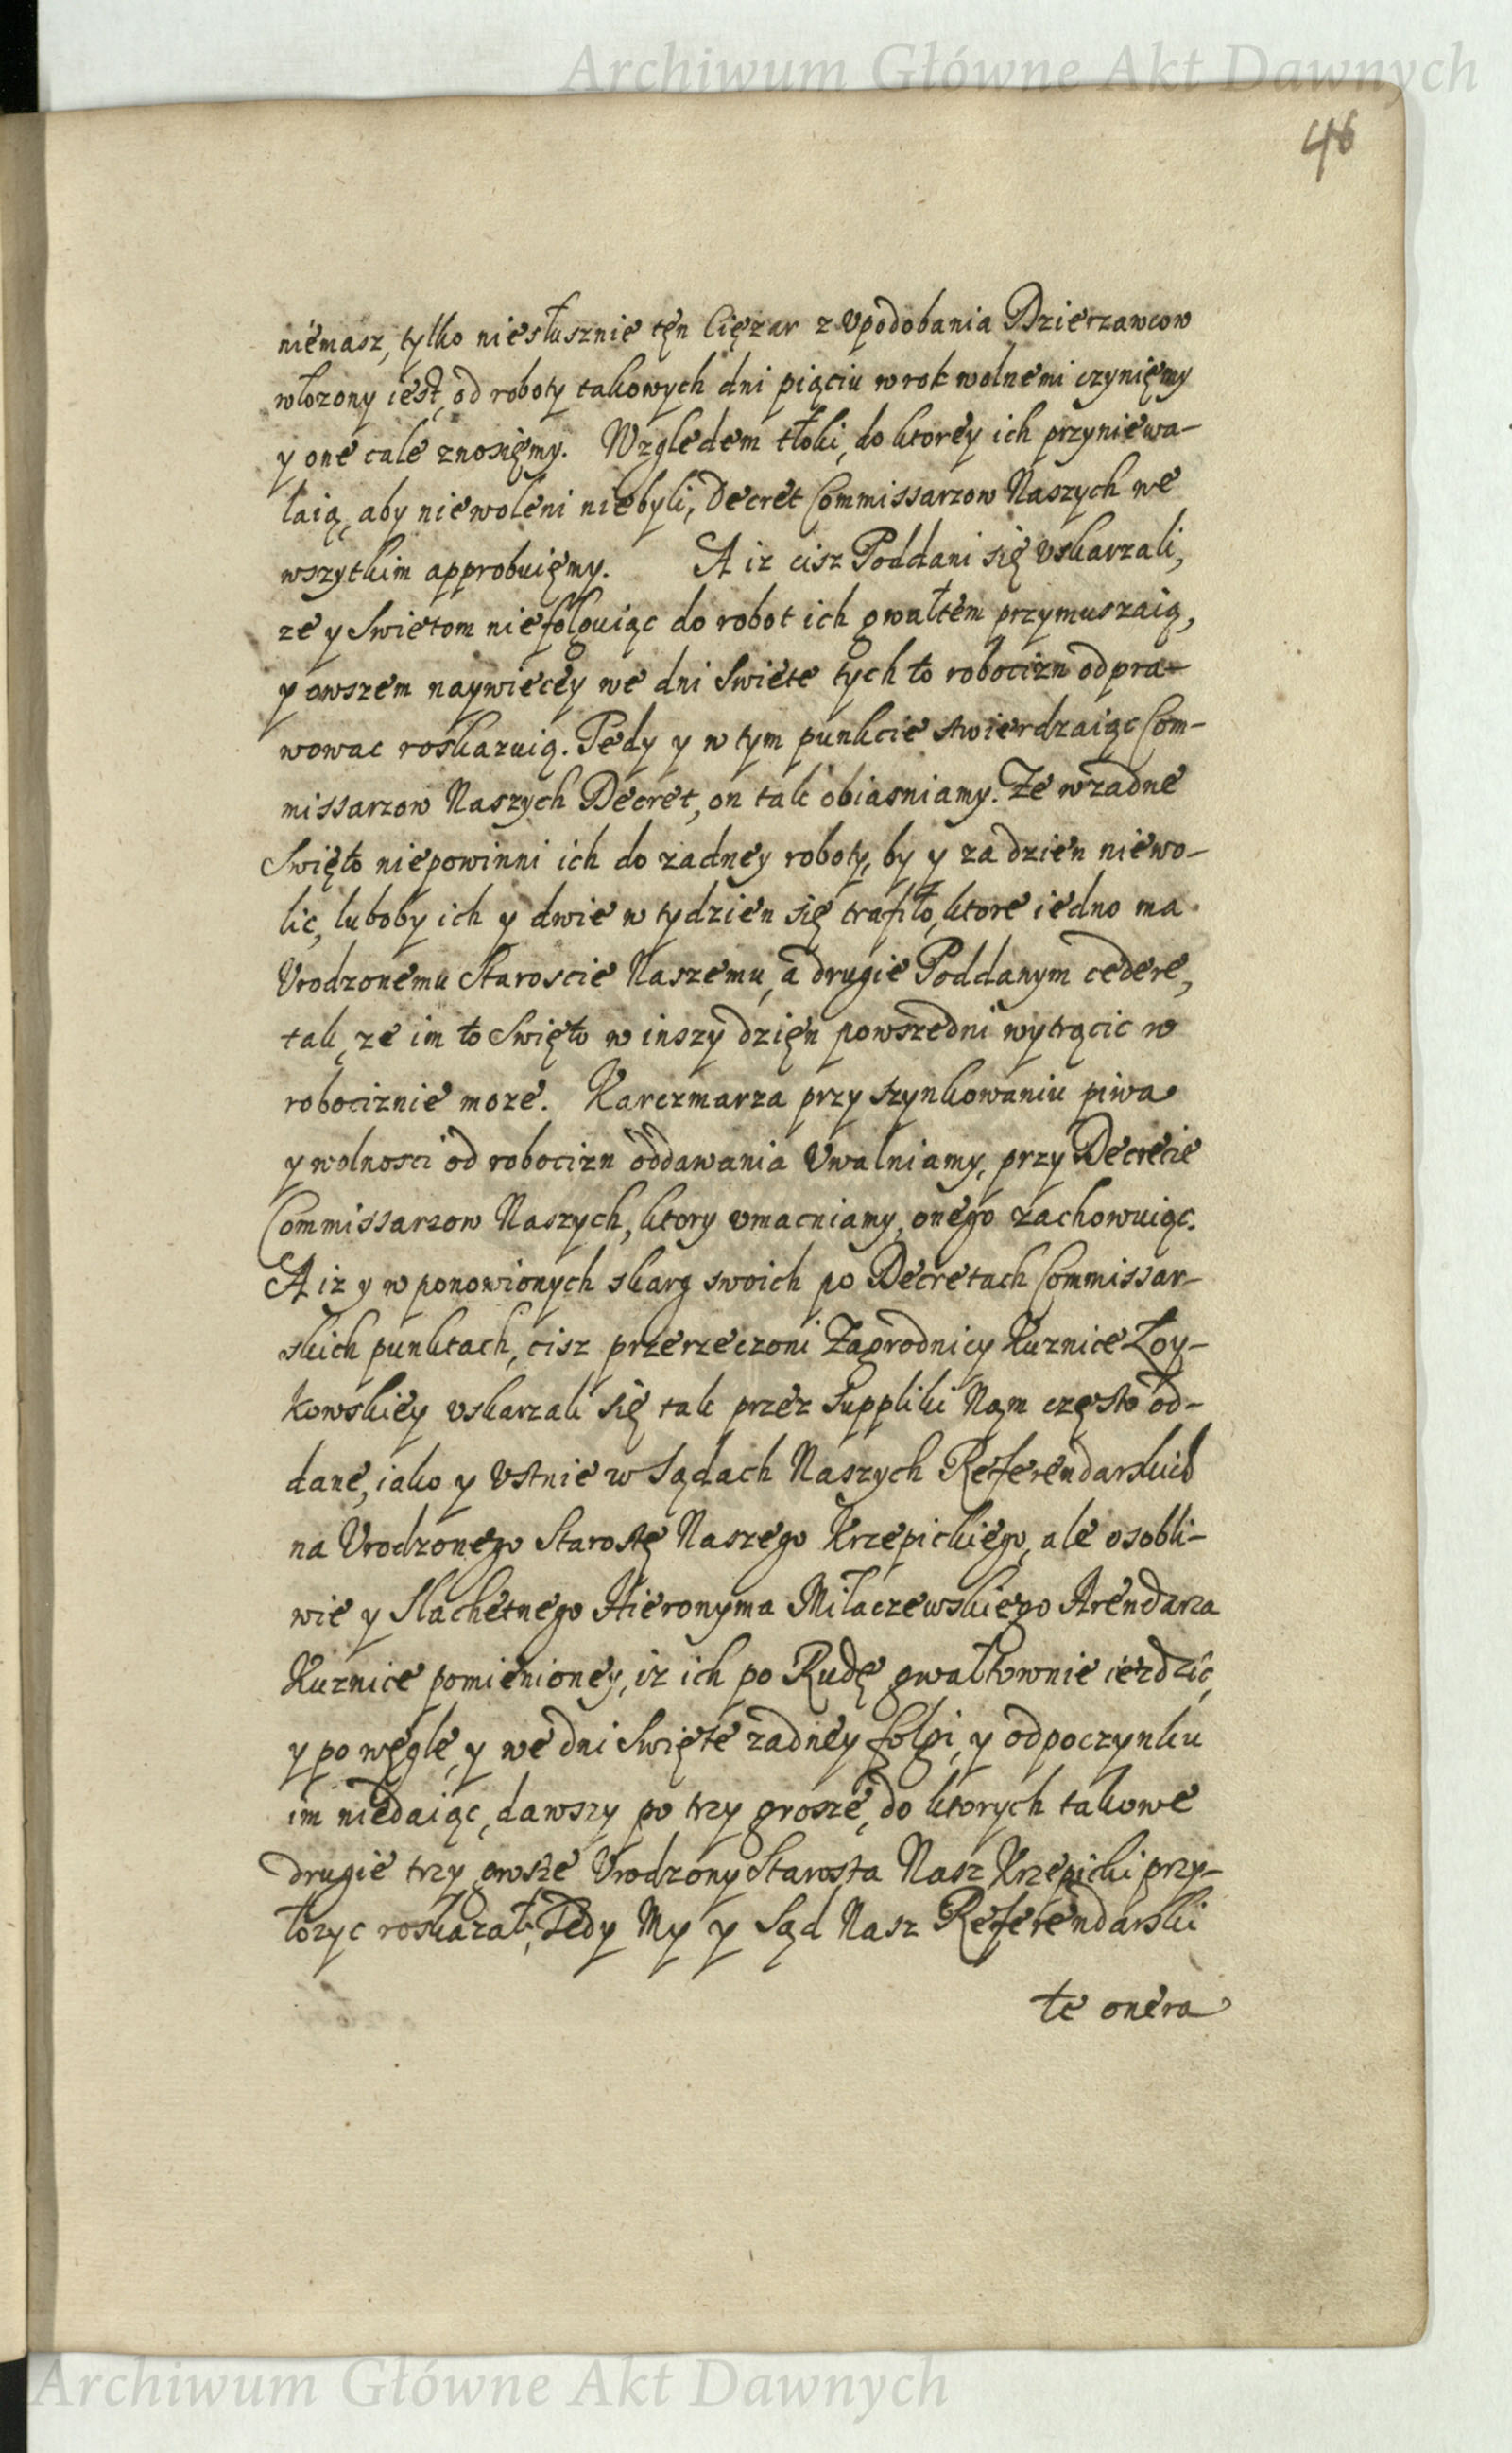 Archiwum Główne Akt Dawnych
46
niemasz, tylko niesłusznie tęn Ciężar z Upodobania Dzierzawcow
włozony iest, od roboty takowych dni piąciu w rok wolnemi czynięmy
y one cale znosięmy. Względem tłoki, do ktorey ich przyniewa-
laią, aby niewoleni niebyli, Decret Commissarzow Naszych we
wszytkim approbuięmy. A iz cisz Poddani się Uskarzali,
ze y Swietom niefolguiąc do robot ich gwałtem przymuszaią,
y owszem naywiecey we dni Swiete tych to robocizn odpra-
wowac roskazuią. Tedy y w tym punkcie stwierdzaiąc Com-
missarzow Naszych Decret, on tak obiasniamy. Ze wzadne
Swięto niepowinni ich do zadney roboty, by y za dzien niewo-
lic, luboby ich y dwie w tydzien się trafiło, ktore iedno ma
Urodzonemu Staroscie Naszemu, a drugie Poddanym cedere,
tak, ze im to Swięto w inszy dzięn powszedni wytrącic w
robociznie moze. Karczmarza przy szynkowaniu piwa
y wolnosci od robocizn oddawania Uwalniamy, przy Decrecie
Commissarzow Naszych, ktory umacniamy, onego zachowuiąc.
A iz y w ponowionych skarg swoich po Decretach Commissar-
skich punktach, cisz przerzeczoni Zagrodnicy Kuznice Zoy-
kowskiey uskarzali się tak przez Suppliki Nąm często od-
dane, iako y Ustnie w Sądach Naszych Referendarskich
na Urodzonego Starostę Naszego Krzepickiego, ale osobli-
wie y Slachetnego Hieronyma Milaczewskiego Arendarza
Kuznice pomienioney, iz ich po Rudę gwałtownie iezdzic,
y po węgle, y we dni Swięte zadney folgi, y odpoczynku
im niedaiąc, dawszy po trzy grosze, do ktorych takowe
drugie trzy grosze Urodzony Starosta Nasz Krzepicki przy-
łozyc roskazał; Tedy My y Sąd Nasz Referendarski
te onera
Archiwum Główne Akt Dawnych